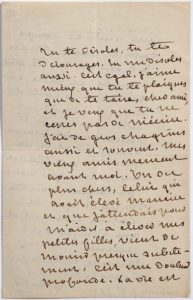 Tu te désoles, tu te
décourages, tu me désoles
aussi. C'est égal, j'aime
mieux que tu te plaignes
que de te taire, cher ami
et je veux que tu ne
cesses pas de m'écrire.
J'ai de gros chagrins
aussi et souvent. Mes
vieux amis meurent
avant moi. Un des
plus chers, celui qui
avait élevé Maurice
et que j'attendais pour
m'aider à élever mes
petites filles, vient de
mourir presque subite-
ment. C'est une douleur
profonde. La vie est